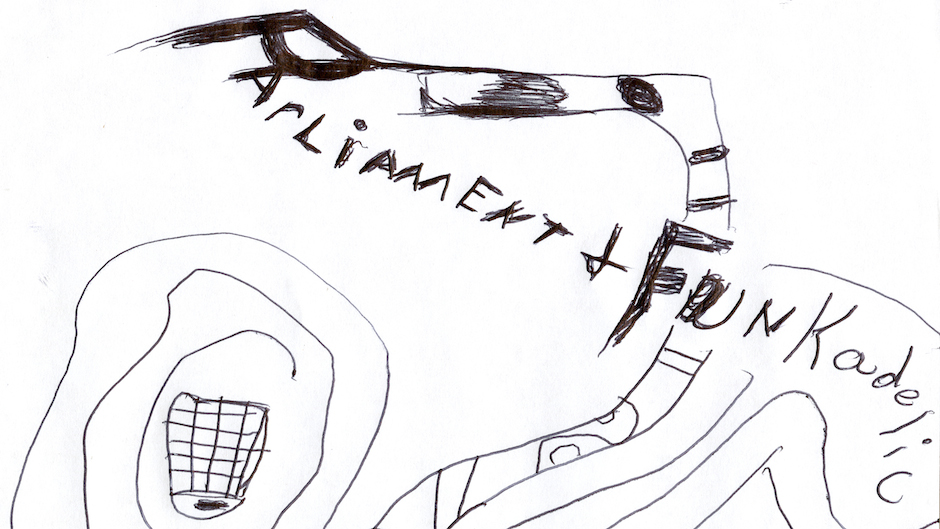 PArLiAMENT & FUNKadelic